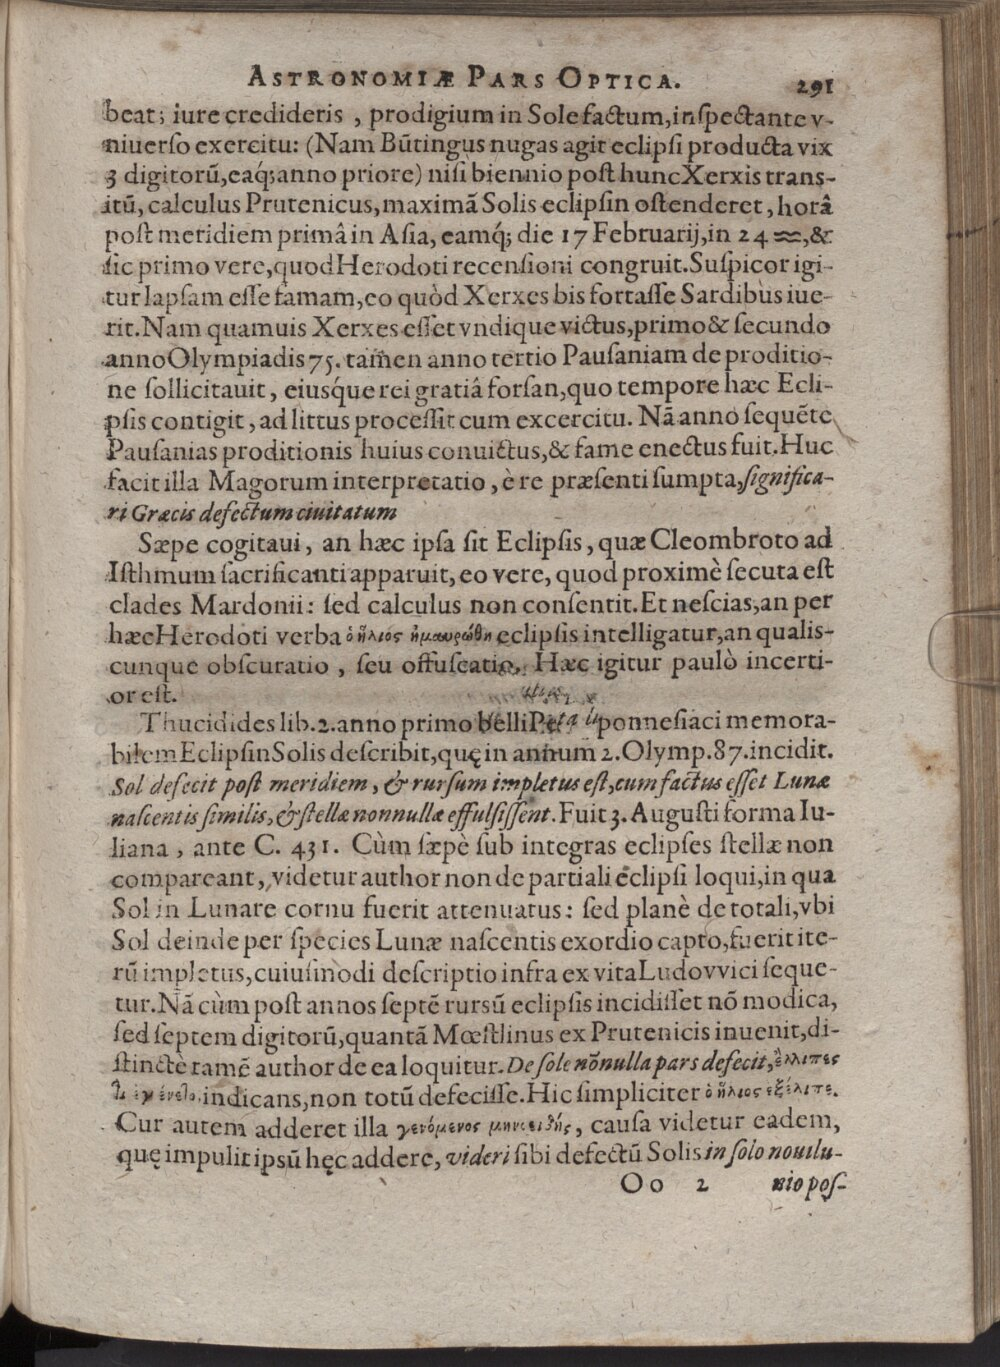 ASTRONOMIÆ PARS OPTICA. 291
beat; iure credideris, prodigium in Sole factum, inſpectante v-
niuerſo exercitu: (Nam Bũtingus nugas agit eclipſi producta vix
3 digitorũ, eaq́; anno priore) niſi biennio poſt hunc Xerxis trans-
itũ, calculus Prutenicus, maximã Solis eclipſin oſtenderet, horâ
poſt meridiem primâ in Aſia, eamq́; die 17 Februarij, in 24 ♒, &
ſic primo vere, quod Herodoti recenſioni congruit. Suſpicor igi-
tur lapſam eſſe famam, eo quòd Xerxes bis fortaſſe Sardibus iue-
rit. Nam quamuis Xerxes eſſet vndique victus, primo & ſecundo
anno Olympiadis 75. tamen anno tertio Pauſaniam de proditio-
ne ſollicitauit, eiusq́ue rei gratiâ forſan, quo tempore hæc Ecli-
pſis contigit, ad littus proceſſit cum excercitu. Nã anno ſequẽte
Pauſanias proditionis huius conuictus, & fame enectus fuit. Huc
facit illa Magorum interpretatio, è re præſenti ſumpta, ſignifica-
ri Græcis defectum ciuitatum
Sæpe cogitaui, an hæc ipſa ſit Eclipſis, quæ Cleombroto ad
Iſthmum ſacrificanti apparuit, eo vere, quod proximè ſecuta eſt
clades Mardonii: ſed calculus non conſentit. Et neſcias, an per
hæc Herodoti verba ὁ ἥλιος ἠμαυρώθη eclipſis intelligatur, an qualis-
cunque obſcuratio, ſeu offuſcatio. Hæc igitur paulò incerti-
or eſt.
Thucidides lib. 2. anno primo belli Pe ponneſiaci memora-
bilem Eclipſin Solis deſcribit, quę in annum 2. Olymp. 87. incidit.
Sol defecit poſt meridiem, & rurſum impletus eſt, cum factus eſſet Lunæ
naſcentis ſimilis, & ſtellæ nonnullæ effulſiſſent. Fuit 3. Auguſti forma Iu-
liana, ante C. 431. Cùm ſæpè ſub integras eclipſes ſtellæ non
compareant, videtur author non de partiali eclipſi loqui, in qua
Sol in Lunare cornu fuerit attenuatus: ſed planè de totali, vbi
Sol deinde per ſpecies Lunæ naſcentis exordio capto, fuerit ite-
rũ impletus, cuiuſmodi deſcriptio infra ex vita Ludovvici ſeque-
tur. Nã cùm poſt annos ſeptẽ rurſũ eclipſis incidiſſet nõ modica,
ſed ſeptem digitorũ, quantã Mœſtlinus ex Prutenicis inuenit, di-
ſtinctè tamẽ author de ea loquitur. De ſole nõnulla pars defecit, ἐλλιπές
indicans, non totũ defeciſſe. Hic ſimpliciter ὁ ἥλιος ἐξέλιπε.
Cur autem adderet illa γενόμενος μηνοειδής, cauſa videtur eadem,
quę impulit ipſũ hęc addere, videri ſibi defectũ Solis in ſolo nouilu-
Oo 2 nio poſ-